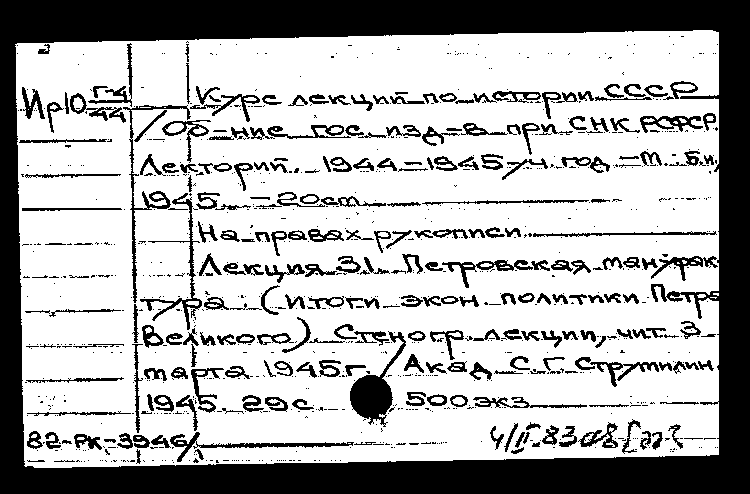 Ир10 Г-4/44 Курс лекций по истории СССР
/Об-ние гос. изд-в при СНК РСФСР.
Лекторий. 1944-1945 уч. год. -М.: Б.и.,
1945. -20см.
На правах рукописи.
Лекция 31. Петровская мануфак-
тура. (Итоги экон. политики Петра
Великого). Стеногр. лекции, чит. 3
марта 1945г. / Акад. С.Г. Струмилин.
1945. 29с. 500экз.
82-РК-3946/ 4/II-83